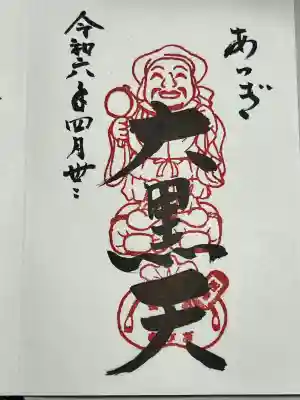 あつぎ
大黒天
令和六年四月廿二